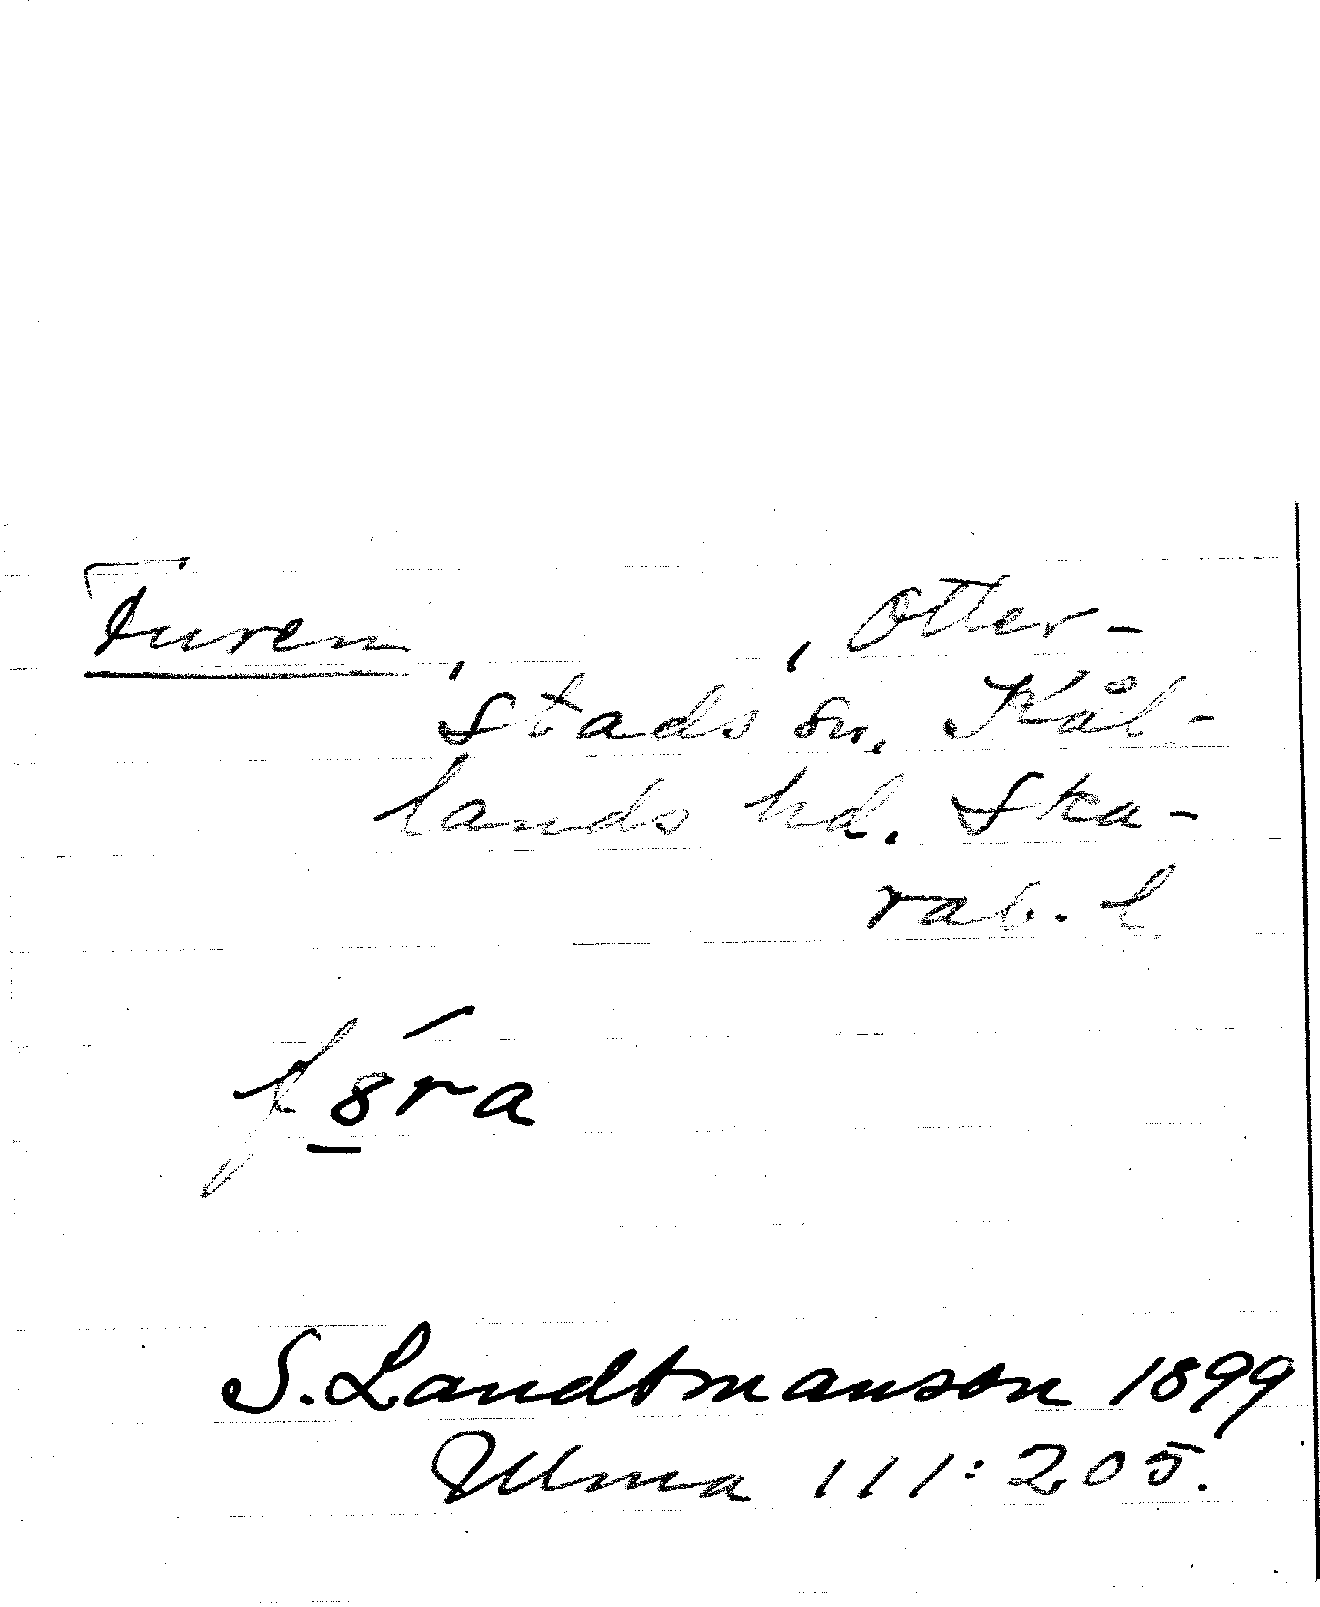 Furen, , Otter-
stads sn, Kål-
lands hd. Ska-
rab. l
f8ra
S. Landtmanson 1899
Ulma 111:205.